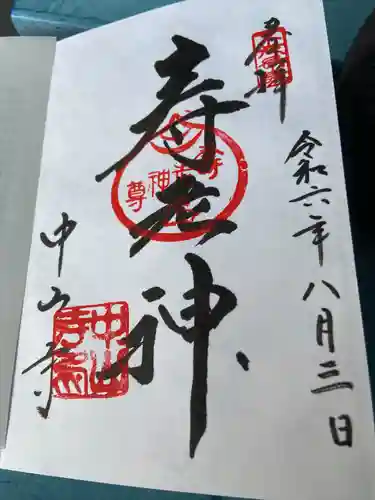 奉拝
令和六年八月三日
寿老神
寿老神尊
中山寺
中山寺